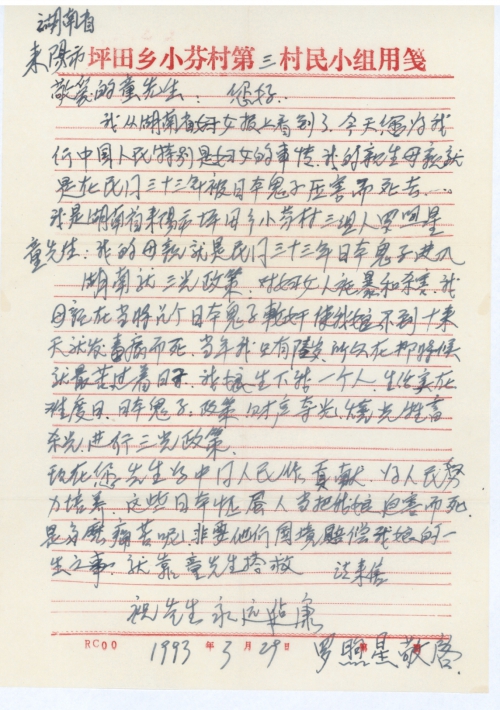 湖南省
耒阳市 坪田乡小芬村第三村民小组用笺
敬爱的童先生：您好.
我从湖南省妇女报上看到了.今天您为我
们中国人民特别是妇女的事情.我的亲生母亲就
是在民国三十三年被日本鬼子压害而死去……
我是湖南省耒阳市坪田乡小芬村三组人罗照星
童先生：我的母亲就是民国三十三年日本鬼子进入
湖南就三光政策.对妇女人被暴和杀害.我
母亲在当时 个日本鬼子 奸使我娘不到十来
天就发毒病而死.当年我只有 岁.所以在那时候
就最苦过着日子.我娘生下我一个人.生活实在
难度日.日本鬼子.政策.财产夺光.烧光牲畜
杀光.进行三光政策.
现在您先生为中国人民作贡献.为人民努
力培养.这些日本 当把我娘迫害而死
是多麽痛苦呢.非要他们国 赔偿我娘的一
生之事.就靠童先生搭救 法来信
祝先生永远 康
RC00 1993年3月29日 罗照星敬启.